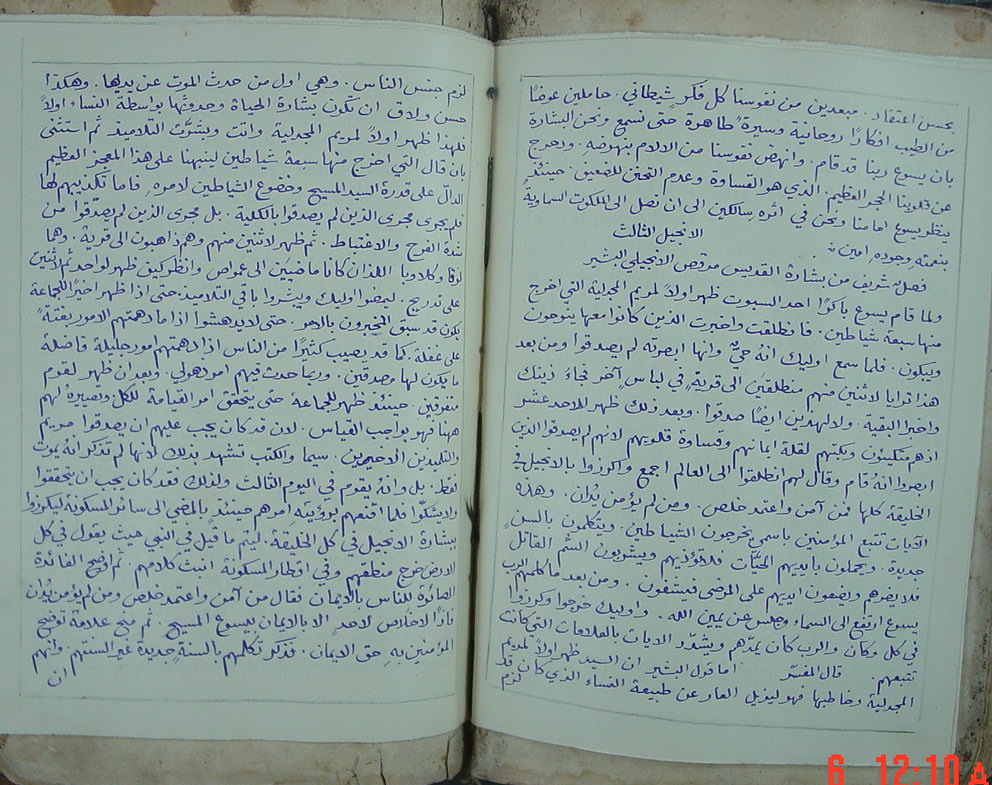 بحسن اعتقاد. مبعدين من نفوسنا كل فكرٍ شيطاني. حاملين عوضًا
من الطيب افكارًا روحانية وسيرةً طاهرة حتى نسمع ونحن البشارة
بان يسوع ربنا قد قام. وانهض نفوسنا من الالام بنهوضه. ودحرج
عن قلوبنا الحجر العظيم. الذي هو القساوة وعدم التحقق للضعيق. حينئذٍ
ينظر يسوع امامنا ونحن في اثره سالكين الى ان نصل الى الملكوت السماوية
بنعمته وجوده امين
الانجيل الثالث
فصل شريف من بشارة القديس مرقص الانجيلي البشير
ولما قام يسوع باكرًا احد السبوت ظهر اولاً لمريم المجدلية التي اخرج
منها سبعة شياطين. فانطلقت واخبرت الذين كانوا معها ينوحون
ويبكون. فلما سمع اوليك انهُ حيٌّ وانها ابصرته لم يصدقوا ومن بعد
هذا ترايا لاثنين منهم منطلقين الى قريةٍ في لباسٍ آخر فجاءَ ذينك
واخبرا البقية. ولا لهذين ايضًا صدقوا. وبعد ذلك ظهر للاحد عشر
اذ هم متكيئون وبكتهم لقلة ايمانهم وقساوة قلوبهم لانهم لم يصدقوا الذين
ابصروا انهُ قام وقال لهم انطلقوا الى العالم اجمع واكرزوا بالانجيل في
الخليقة كلها فمن آمن واعتمد خلص. ومن لم يؤمن يُدان. وهذه
الآيات تتبع المؤمنين باسمي يخرجون الشياطين. ويتكلمون بالسنٍ
جديدة. ويحملون بايديهم الحيَّات فلا تؤذيهم ويشربون السُّم القاتل
فلا يضرهم ويضعون ايديهم على المرضى فيشفون. ومن بعد ما كلمهم الرب
يسوع ارتفع الى السماء وجلس عن يمين الله. واوليك خرجوا وكرزوا
في كل مكان والرب كان يمدّهم ويشدّد الايات بالعلامات التي كانت
تتبعهم. قال المفسّر اما قول البشير ان السيد ظهر اولاً لمريم
المجدلية وخاطبها فهو ليزيل العار عن طبيعة النساء الذي كان قد
لزم
لزم جنس الناس. وهي اول من حدث الموت عن يديها. وهكذا
حسن ولاق ان تكون بشارة الحياة وحدوثها بواسطة النساء اولاً
فلهذا ظهر اولاً لمريم المجدلية واتت وبشرَّت التلاميذ ثم استثنى
بان قال التي اخرج منها سبعة شياطين لينبهنا على هذا المعجز العظيم
الدالّ على قدرة السيد المسيح وخضوع الشياطين لامره. فاما تكذيبهم لها
فلم يجرى مجرى الذين لم يصدقوا بالكلية. بل مجرى الذين لم يصدّقوا من
شدة الفرح والاغتباط. ثم ظهر لاثنين منهم وهم ذاهبون الى قرية. وهما
لوقا وكلاوبا اللذان كانا ماضيَين الى عمواص وانظر كيف ظهر لواحد ثم لاثنين
على تدريج. ليمضوا اوليك ويبشروا باقي التلاميذ. حتى اذا ظهر اخيرًا للجماعة
يكون قد سبق المخبرون بالامر. حتى لا يدهشوا اذا ما دهمتهم الامور بغتةً
على غفلة. كما قد يصيب كثيرًا من الناس اذا دهمتهم امور جليلة فاضلة
ما يكون لها مصدقين. وربما حدث فيهم امر هولي. وبعد ان ظهر لقوم
متفرقين حينئذ ظهر للجماعة حتى يتحقق امر القيامة للكل وتعييره لهم
ههنا فهو بواجب القياس. لان قد كان يجب عليهم ان يصدقوا مريم
والتلميذين الاخيرين. سيما والكتب تشهد بذلك لانها لم تذكر انهُ يموت
فقط. بل وانهُ يقوم في اليوم الثالث ولذلك فقد كان يجب ان يتحققوا
ولا يشكّوا فلما اقنعهم برؤيته امرهم حينئذٍ بالمضي الى سائر المسكونة ليكرزوا
ببشارة الانجيل في كل الخليقة. ليتم ما قيل في النبي حيث يقول في كل
الارض خرج منطقهم وفي اقطار المسكونة انبث كلامهم. ثم افصح الفائدة
الصائرة للناس بالايمان فقال من آمن واعتمد خلص ومن لم يؤمن يُدان
فاذًا لاخلاص لاحدٍ الا بالايمان بيسوع المسيح. ثم منح علامة توضح
المؤمنين بهِ حق الايمان. فذكر تكلمهم بالسنةٍ جديدة غير السنتهم وانهم
ان
6 12:10 A